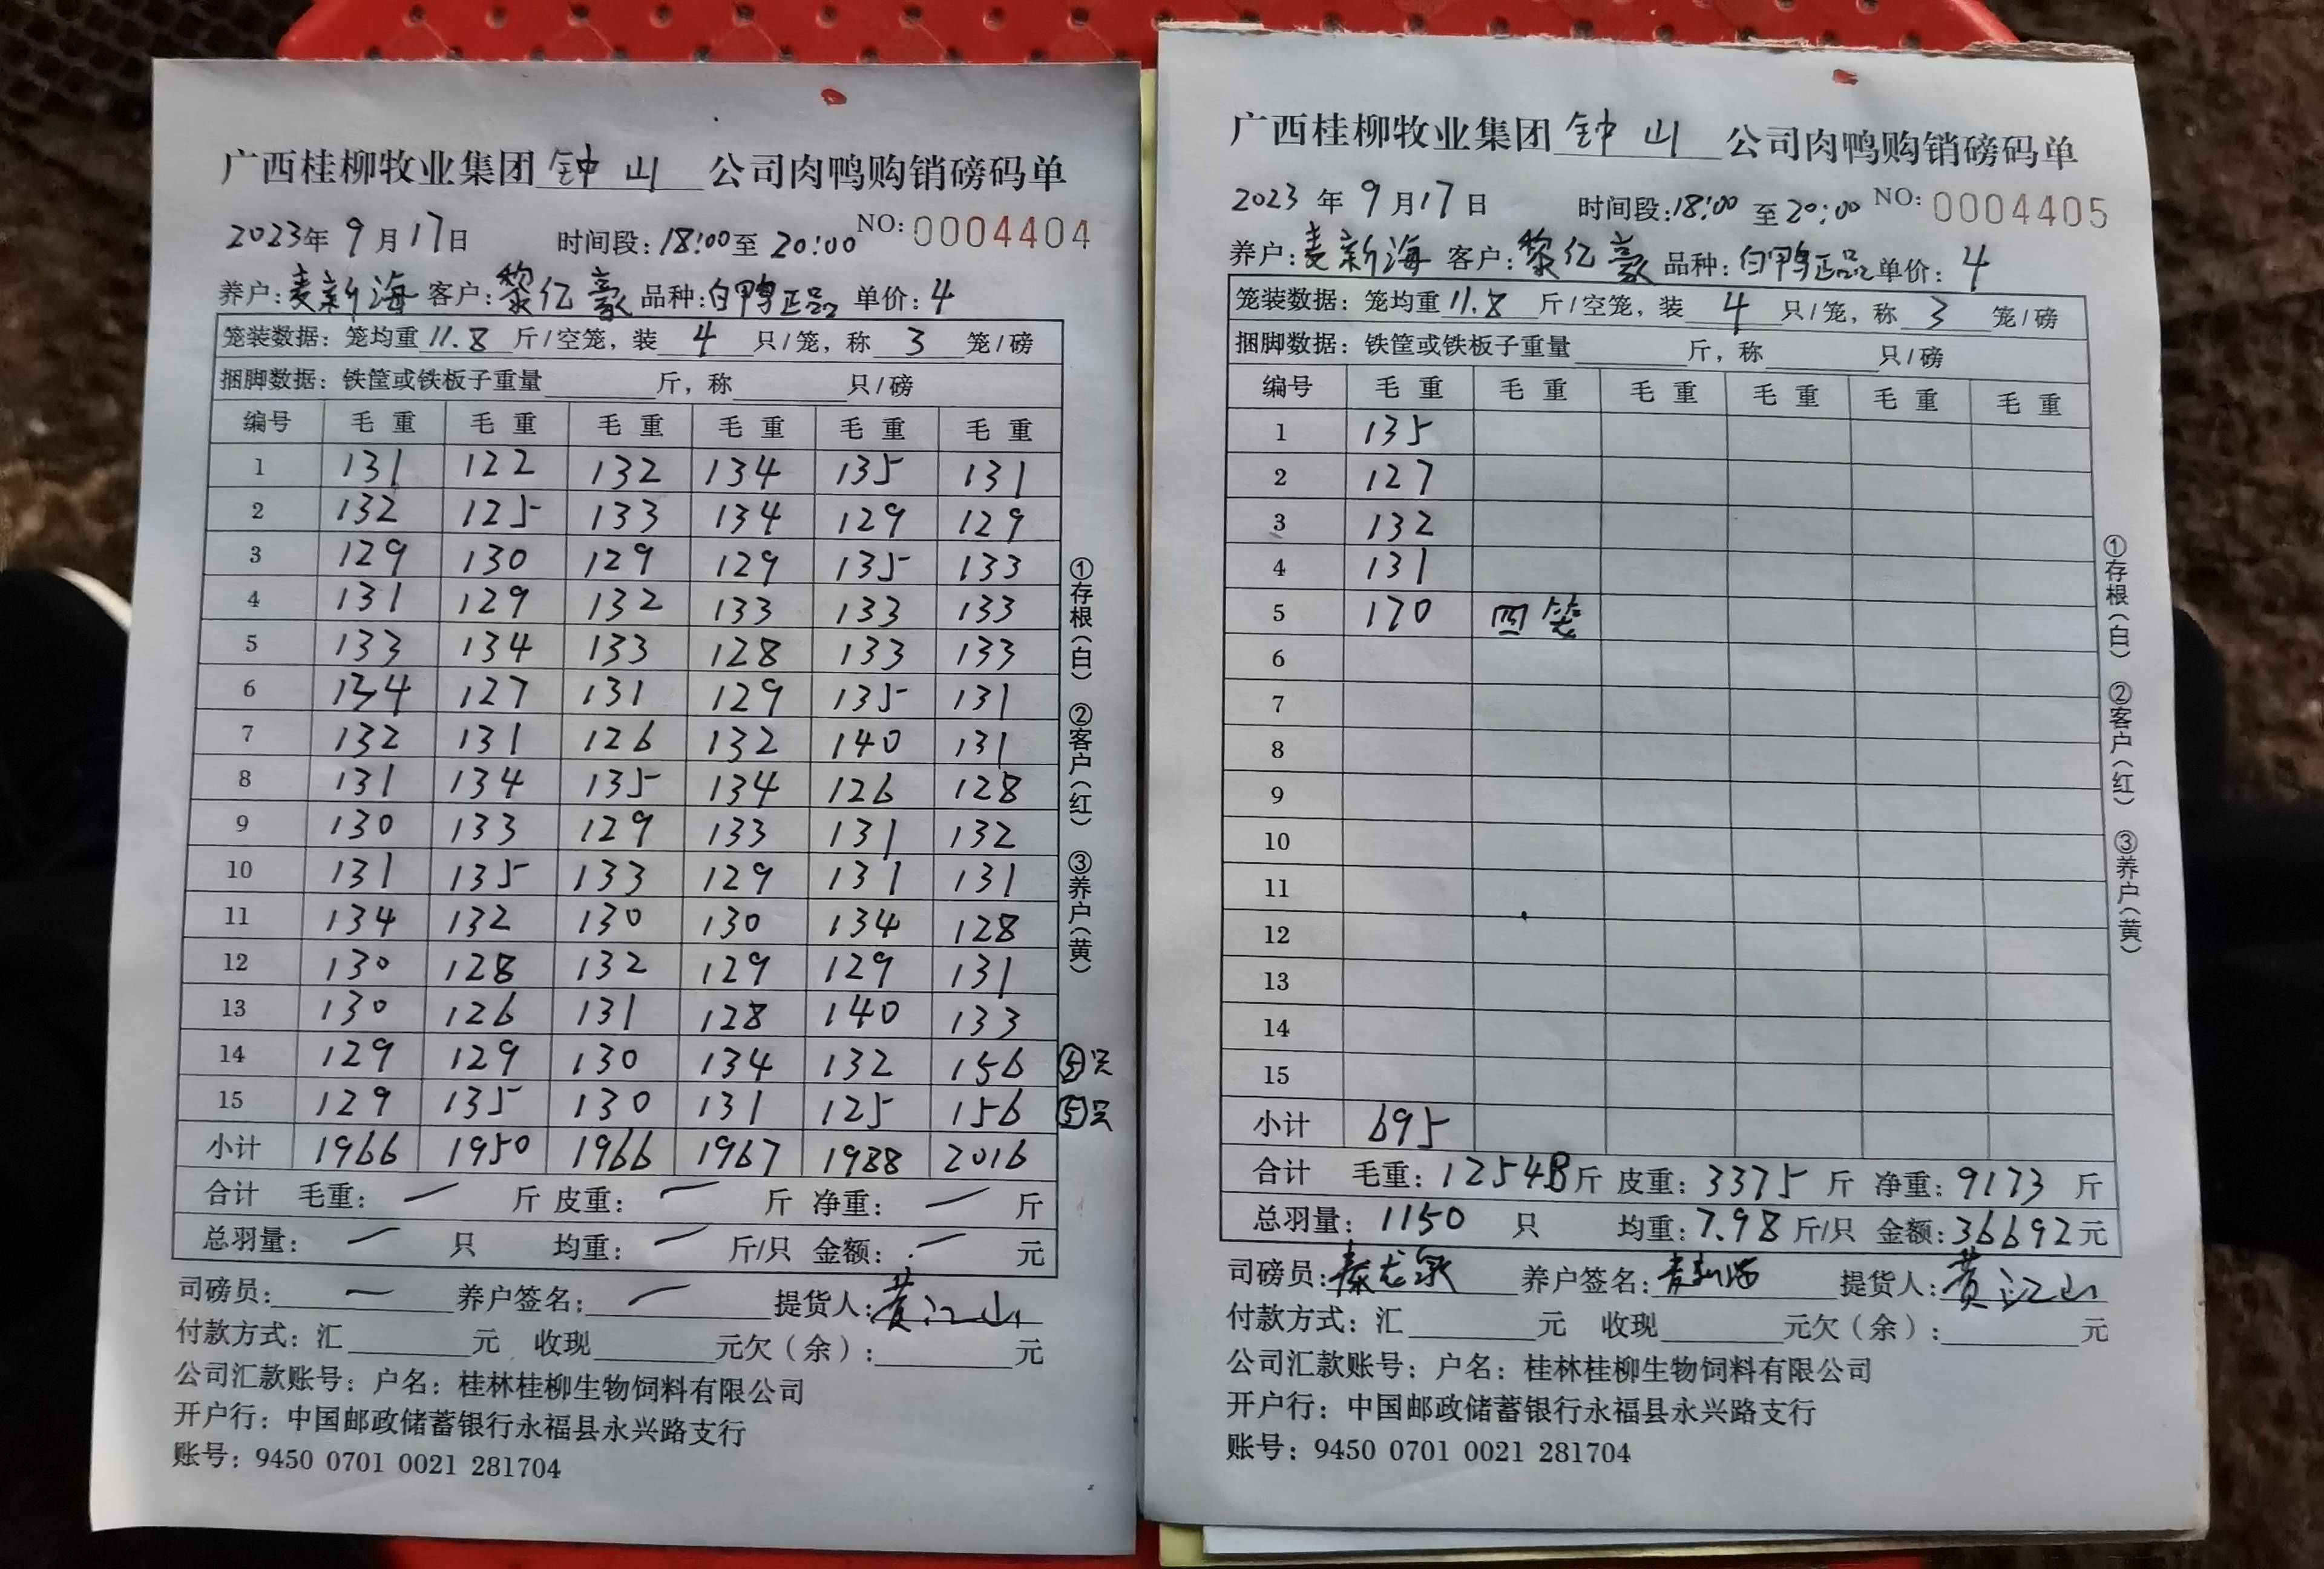 广西桂柳牧业集团 钟山 公司肉鸭购销磅码单
2023年 9月17日 时间段:18:00至20:00 NO:0004404
养户:麦新海 客户:黎亿豪 品种:白鸭正品 单价:4
笼装数据:笼均重11.8斤/空笼,装4只/笼,称3笼/磅
捆脚数据:铁筐或铁板子重量 斤,称 只/磅
编号 毛重 毛重 毛重 毛重 毛重 毛重
1 131 122 132 134 135 131
2 132 125 133 134 129 129
3 129 130 129 129 135 133
4 131 129 132 133 133 133
5 133 134 133 128 133 133
6 134 127 131 129 135 131
7 132 131 126 132 140 131
8 131 134 135 134 126 128
9 130 133 129 133 131 132
10 131 135 133 129 131 131
11 134 132 130 130 134 128
12 130 128 132 129 129 131
13 130 126 131 128 140 133
14 129 129 130 134 132 156 ⑤只
15 129 135 130 131 125 156 ⑤只
小计 1966 1950 1966 1967 1988 2016
合计 毛重:— 斤 皮重:— 斤 净重:— 斤
总羽量:— 只 均重:— 斤/只 金额:— 元
司磅员:— 养户签名:— 提货人:黄江山
付款方式:汇 元 收现 元欠(余): 元
公司汇款账号:户名:桂林桂柳生物饲料有限公司
开户行:中国邮政储蓄银行永福县永兴路支行
账号:9450 0701 0021 281704
①存根(白) ②客户(红) ③养户(黄)
广西桂柳牧业集团 钟山 公司肉鸭购销磅码单
2023年 9月17日 时间段:18:00至20:00 NO:0004405
养户:麦新海 客户:黎亿豪 品种:白鸭正品 单价:4
笼装数据:笼均重11.8斤/空笼,装4只/笼,称3笼/磅
捆脚数据:铁筐或铁板子重量 斤,称 只/磅
编号 毛重 毛重 毛重 毛重 毛重 毛重
1 135
2 127
3 132
4 131
5 170 四笼
6
7
8
9
10
11
12
13
14
15
小计 695
合计 毛重:12548斤 皮重:3375斤 净重:9173斤
总羽量:1150只 均重:7.98斤/只 金额:36692元
司磅员:秦龙泉 养户签名:麦新海 提货人:黄江山
付款方式:汇 元 收现 元欠(余): 元
公司汇款账号:户名:桂林桂柳生物饲料有限公司
开户行:中国邮政储蓄银行永福县永兴路支行
账号:9450 0701 0021 281704
①存根(白) ②客户(红) ③养户(黄)